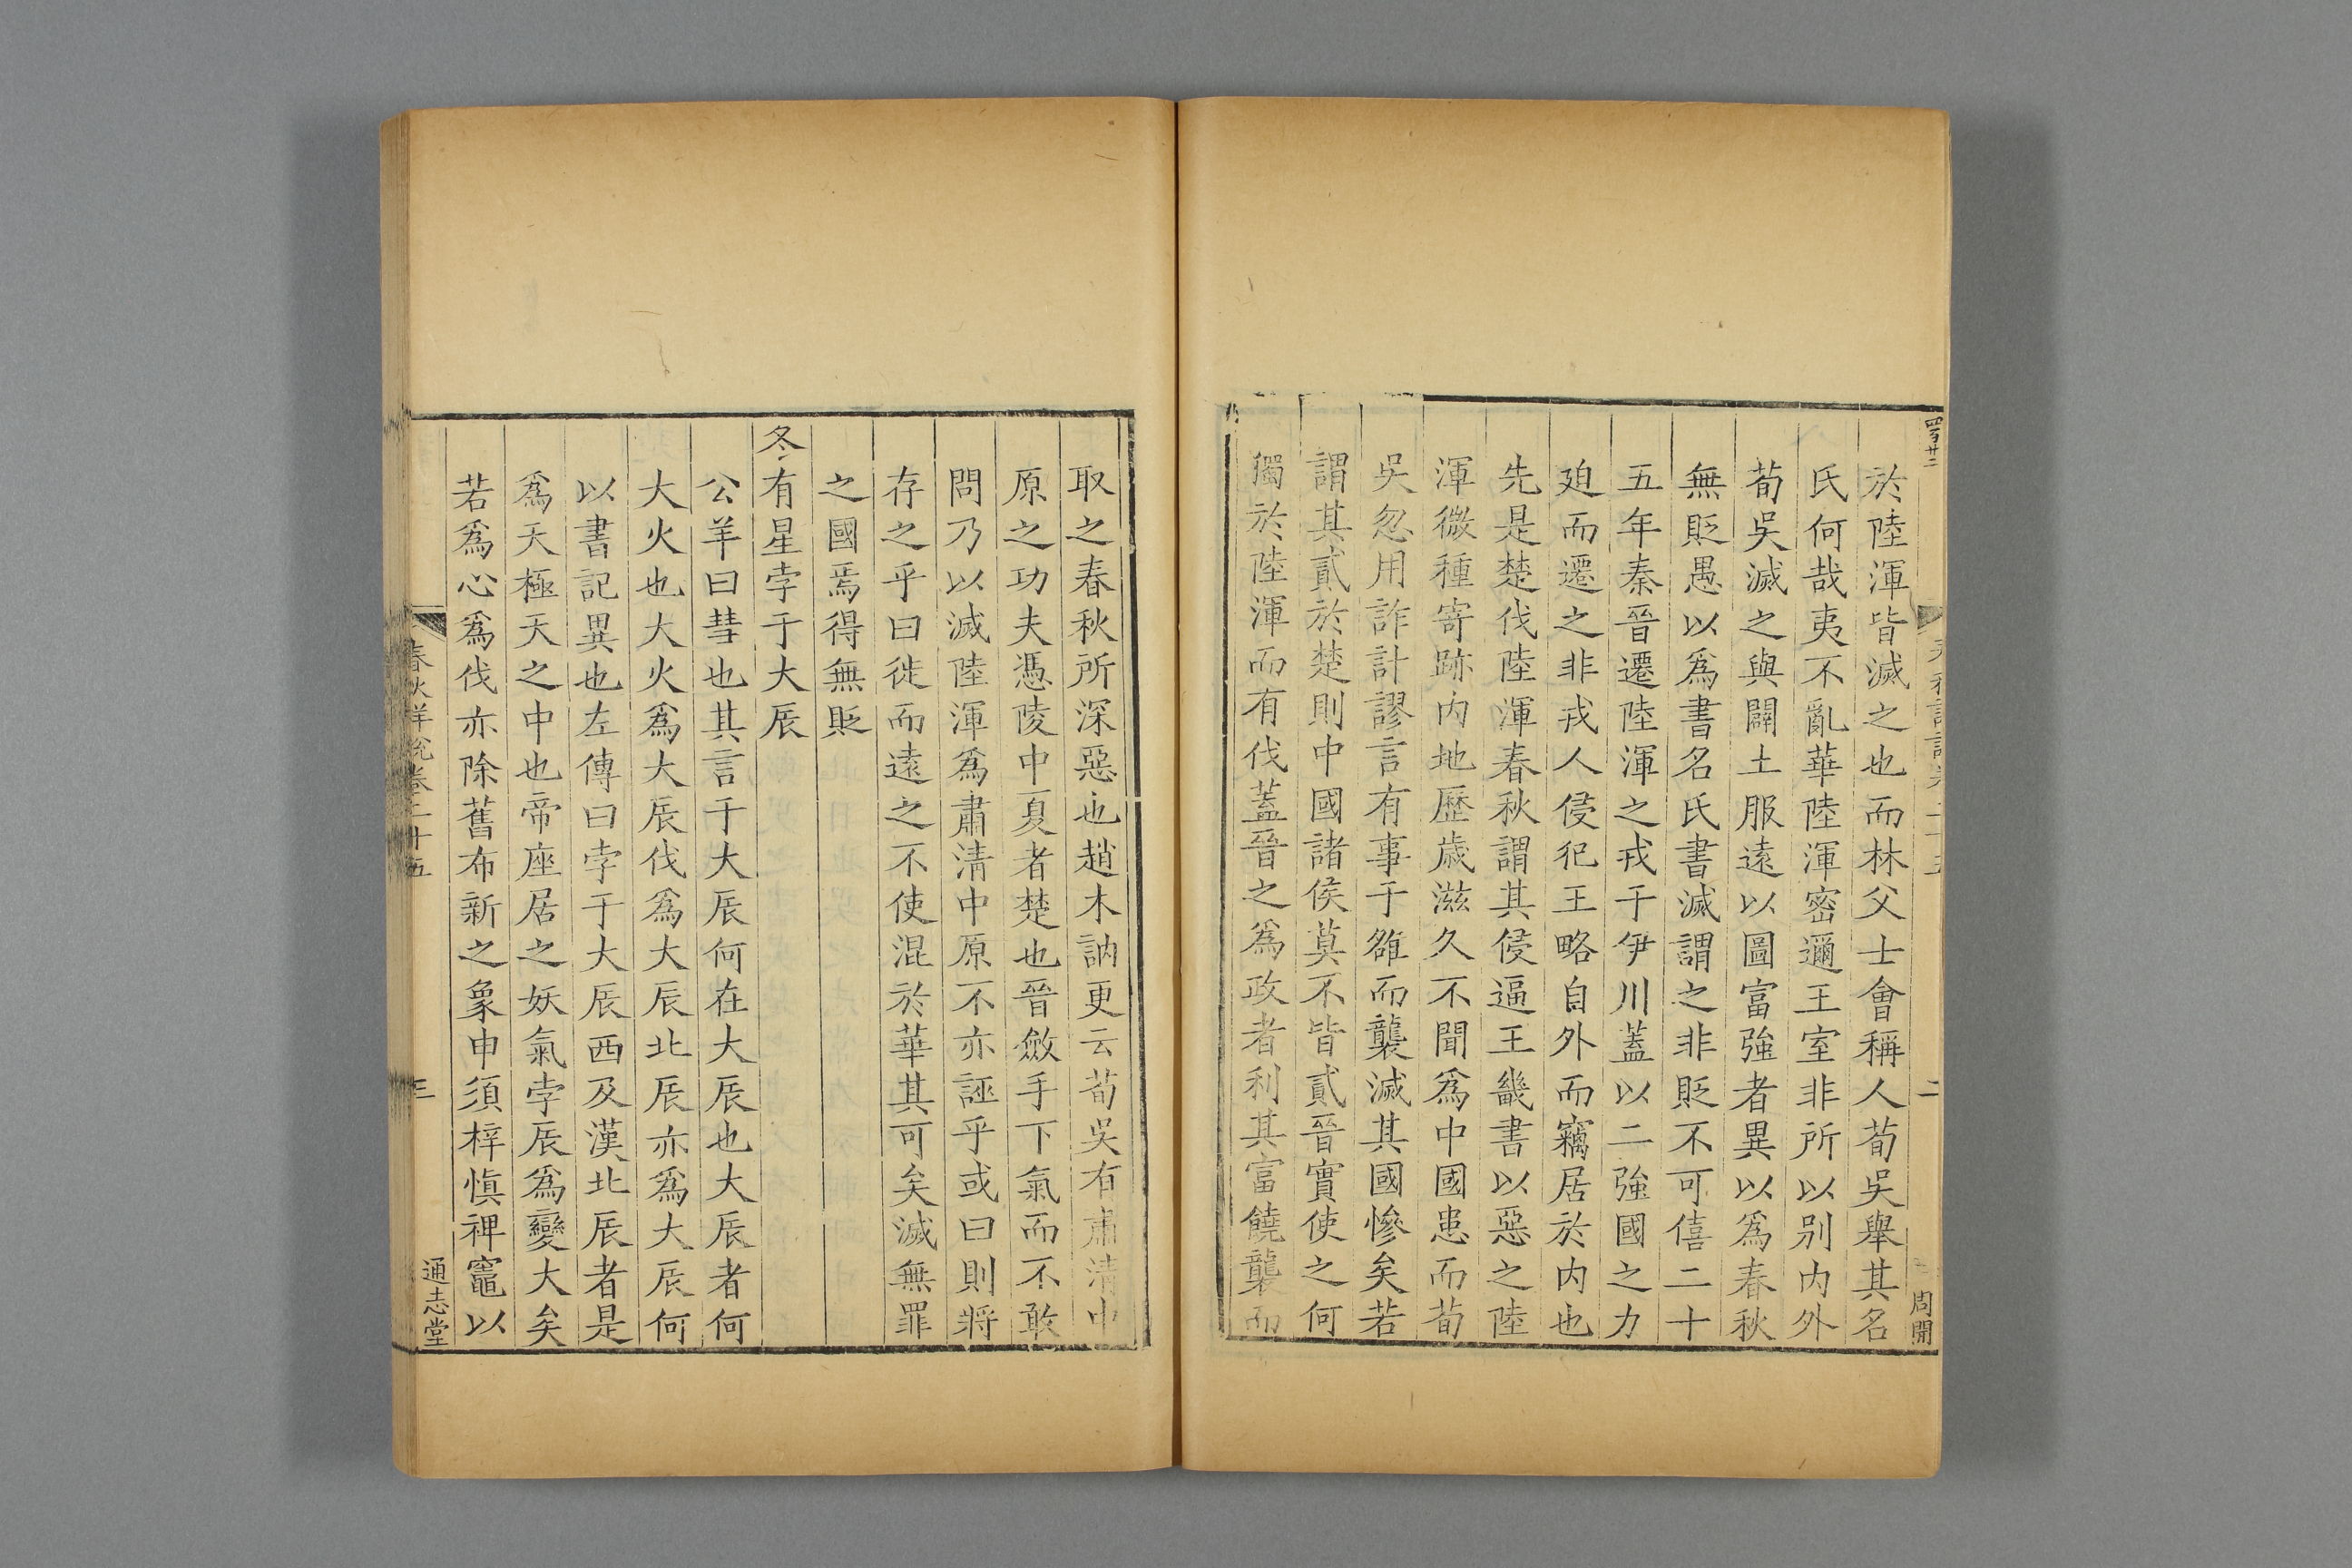 於陸渾皆滅之也而林父士會稱人荀吳舉其名
氏何哉夷不亂華陸渾密邇王室非所以别内外
荀吳滅之與闢土服遠以圖富強者異以爲春秋
無貶愚以爲書名氏書滅謂之非貶不可僖二十
五年秦晉遷陸渾之戎于伊川蓋以二強國之力
廹而遷之非戎人侵犯王略自外而竊居於内也
先是楚伐陸渾春秋謂其侵逼王畿書以惡之陸
渾微種寄跡内地歷歲滋久不聞爲中國患而荀
吳忽用詐計謬言有事于雒而襲滅其國慘矣若
謂其貳於楚則中國諸侯莫不皆貳晉實使之何
獨於陸渾而有伐蓋晉之爲政者利其富饒襲而
取之春秋所深惡也趙木訥更云荀吳有肅清中
原之功夫憑陵中夏者楚也晉斂手下氣而不敢
問乃以滅陸渾爲肅清中原不亦誣乎或曰則將
存之乎曰徙而遠之不使混於華其可矣滅無罪
之國焉得無貶
冬有星孛于大辰
公羊曰彗也其言于大辰何在大辰也大辰者何
大火也大火爲大辰伐爲大辰北辰亦爲大辰何
以書記異也左傳曰孛于大辰西及漢北辰者是
爲天極天之中也帝座居之妖氣孛辰爲變大矣
若爲心爲伐亦除舊布新之象申須梓愼裨竈以
春秋詳說卷二十五
三
通志堂
二
周開